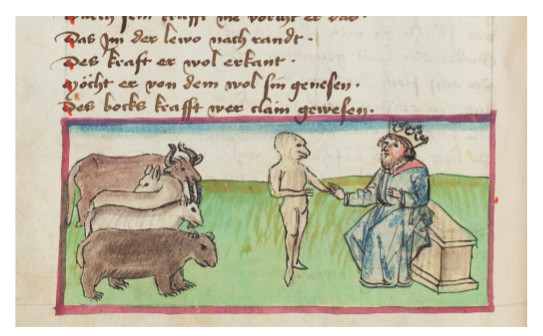 er das
Das Im der lewo nach randt ·
Des krafft er wol erkant ·
Möcht er von dem wol sin genesen ·
Des bocks krafft wer clain gewesen ·